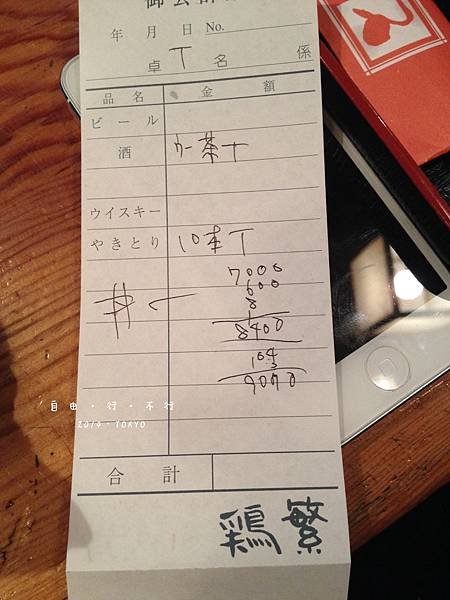 御会計
年 月 日 No.
卓 T 名 係
品名 金額
ビール
酒 ウー茶 T
ウイスキー
やきとり 10本 T
7000
600
8
丼 一
8400
9070
自由・行・不行
2014・TOKYO
合計
鶏繁